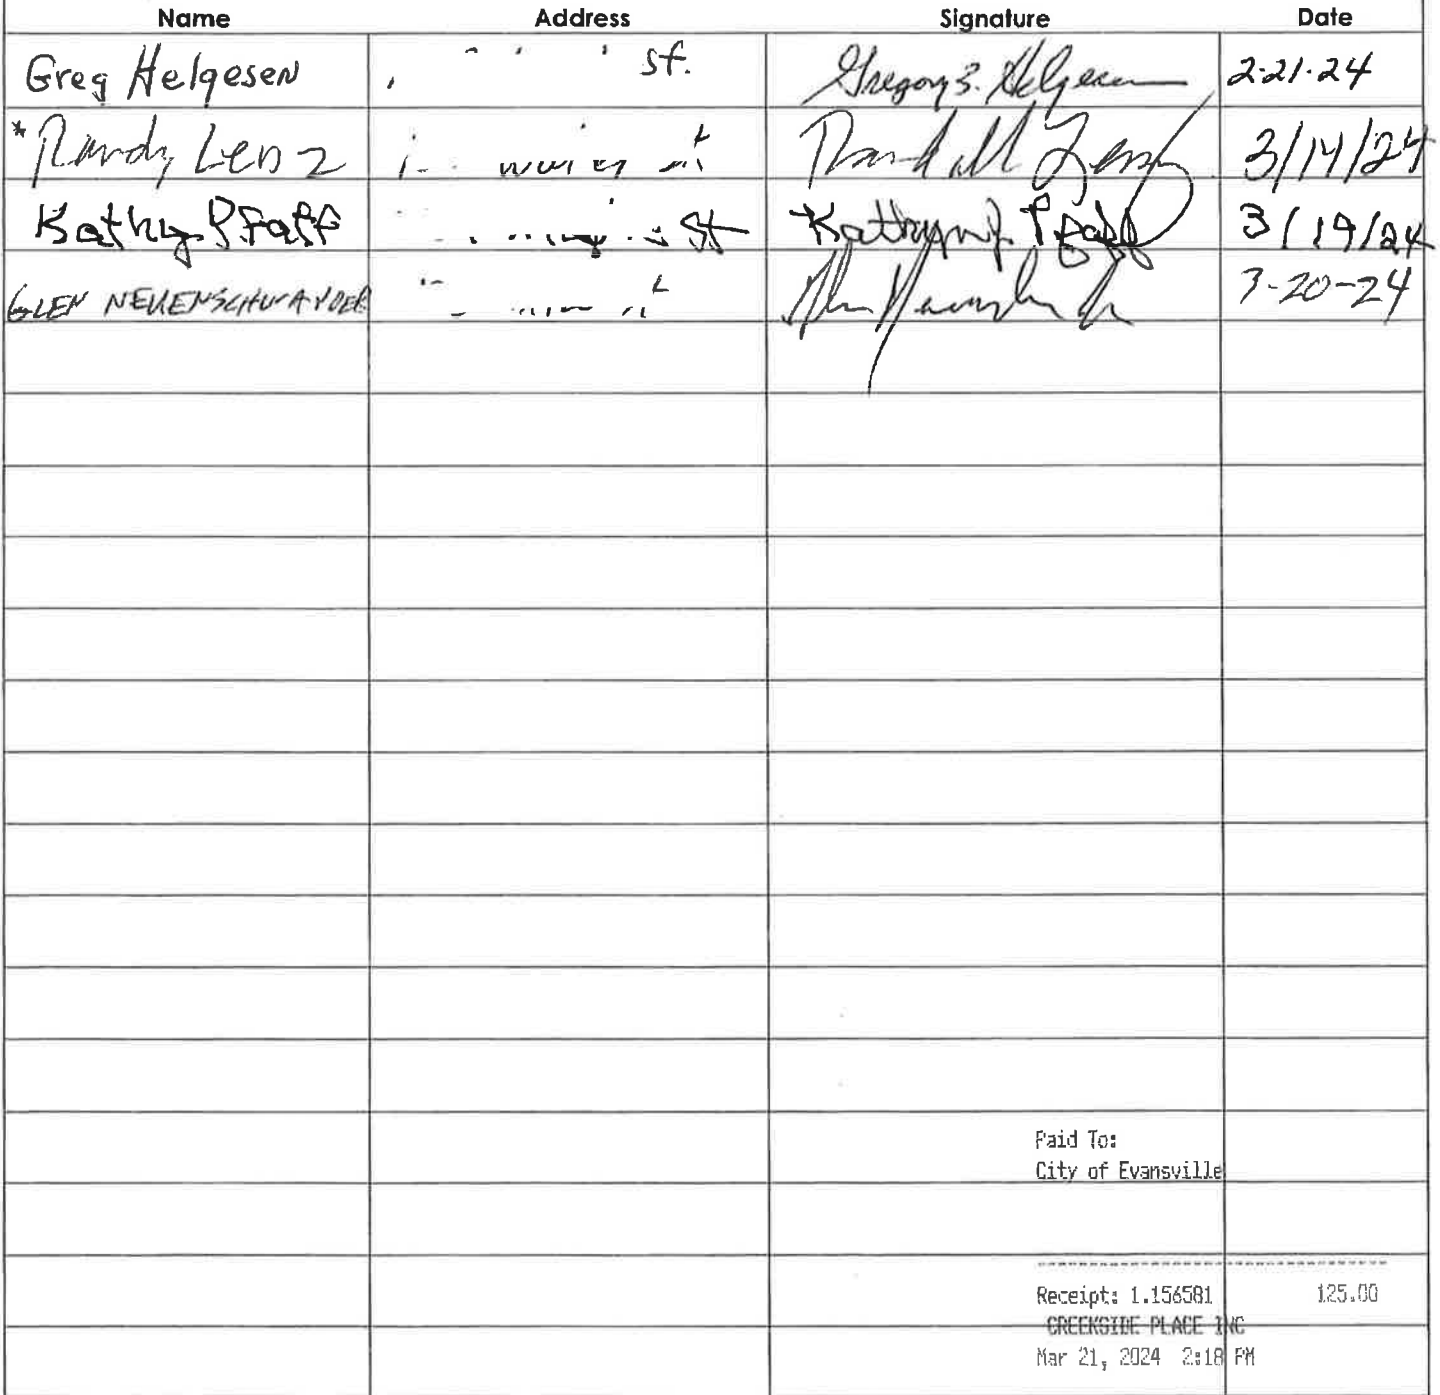 Name Address Signature Date
Greg Helgesen St. Gregory S. Helgesen 2-21-24
*Randy Lenz Randall Lenz 3/14/24
Kathy Pfaff St Kathryn J Pfaff 3/19/24
GLEN NEUENSCHWANDER 3-20-24
Paid To:
City of Evansville
Receipt: 1.156581 125.00
CREEKSIDE PLACE INC
Mar 21, 2024 2:18 PM